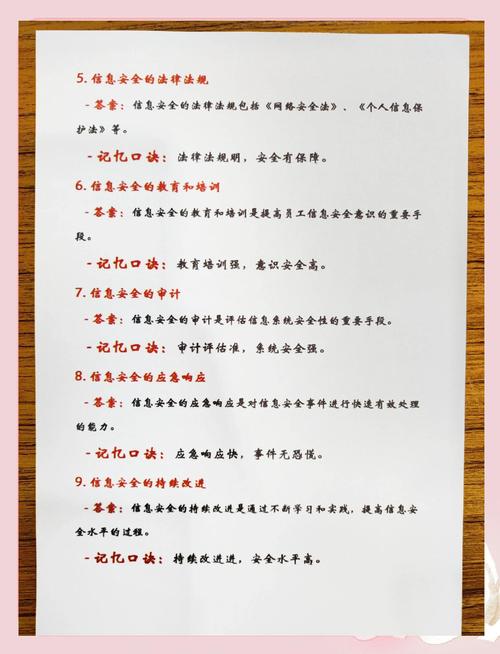 5. 信息安全的法律法规
- 答案：信息安全的法律法规包括《网络安全法》、《个人信息保
护法》等。
- 记忆口诀：法律法规明，安全有保障。
6. 信息安全的教育和培训
- 答案：信息安全的教育和培训是提高员工信息安全意识的重要手
段。
- 记忆口诀：教育培训强，意识安全高。
7. 信息安全的审计
- 答案：信息安全的审计是评估信息系统安全性的重要手段。
- 记忆口诀：审计评估准，系统安全强。
8. 信息安全的应急响应
- 答案：信息安全的应急响应是对信息安全事件进行快速有效处理
的能力。
- 记忆口诀：应急响应快，事件无恐慌。
9. 信息安全的持续改进
- 答案：信息安全的持续改进是通过不断学习和实践，提高信息安
全水平的过程。
- 记忆口诀：持续改进进，安全水平高。